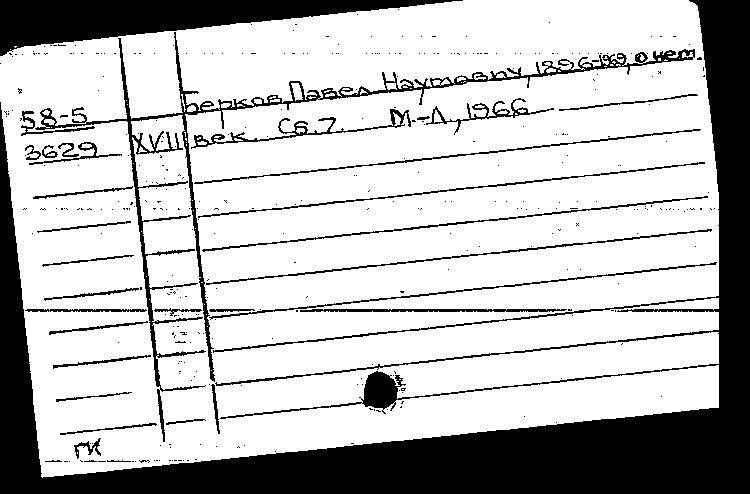 Берков, Павел Наумович, 1896-1969, о нем.
58-5
3629 XVIII век. Сб. 7. М-Л., 1966
ГК